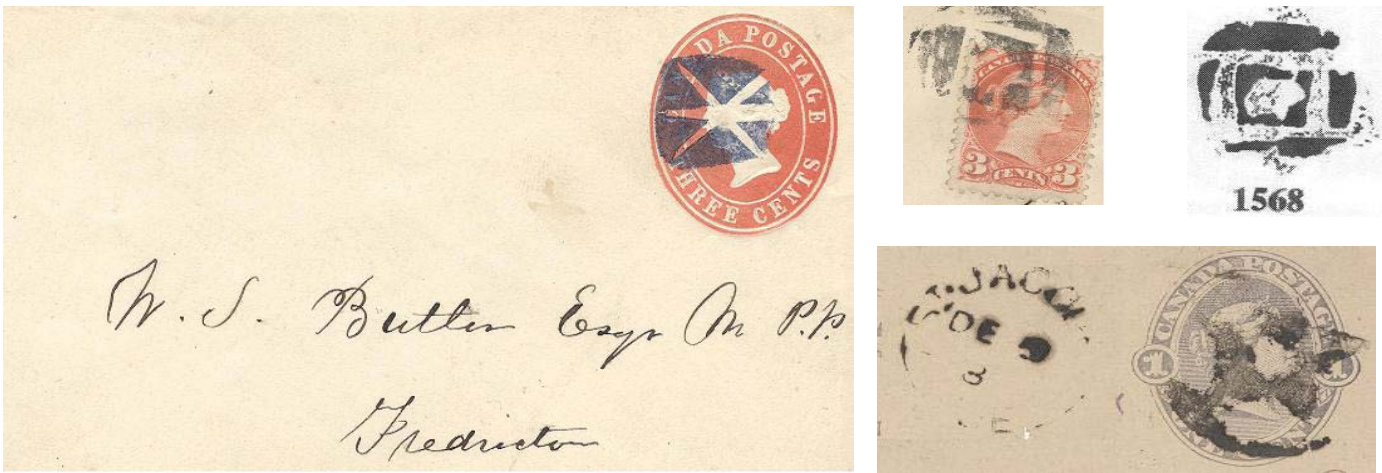 DA POSTAGE
THREE CENTS
W. S. Butler Esqr M P.P.
Fredricton
3 CENTS 3
1568
JACO
DE 9
8
E
CANADA POSTAGE
1 1